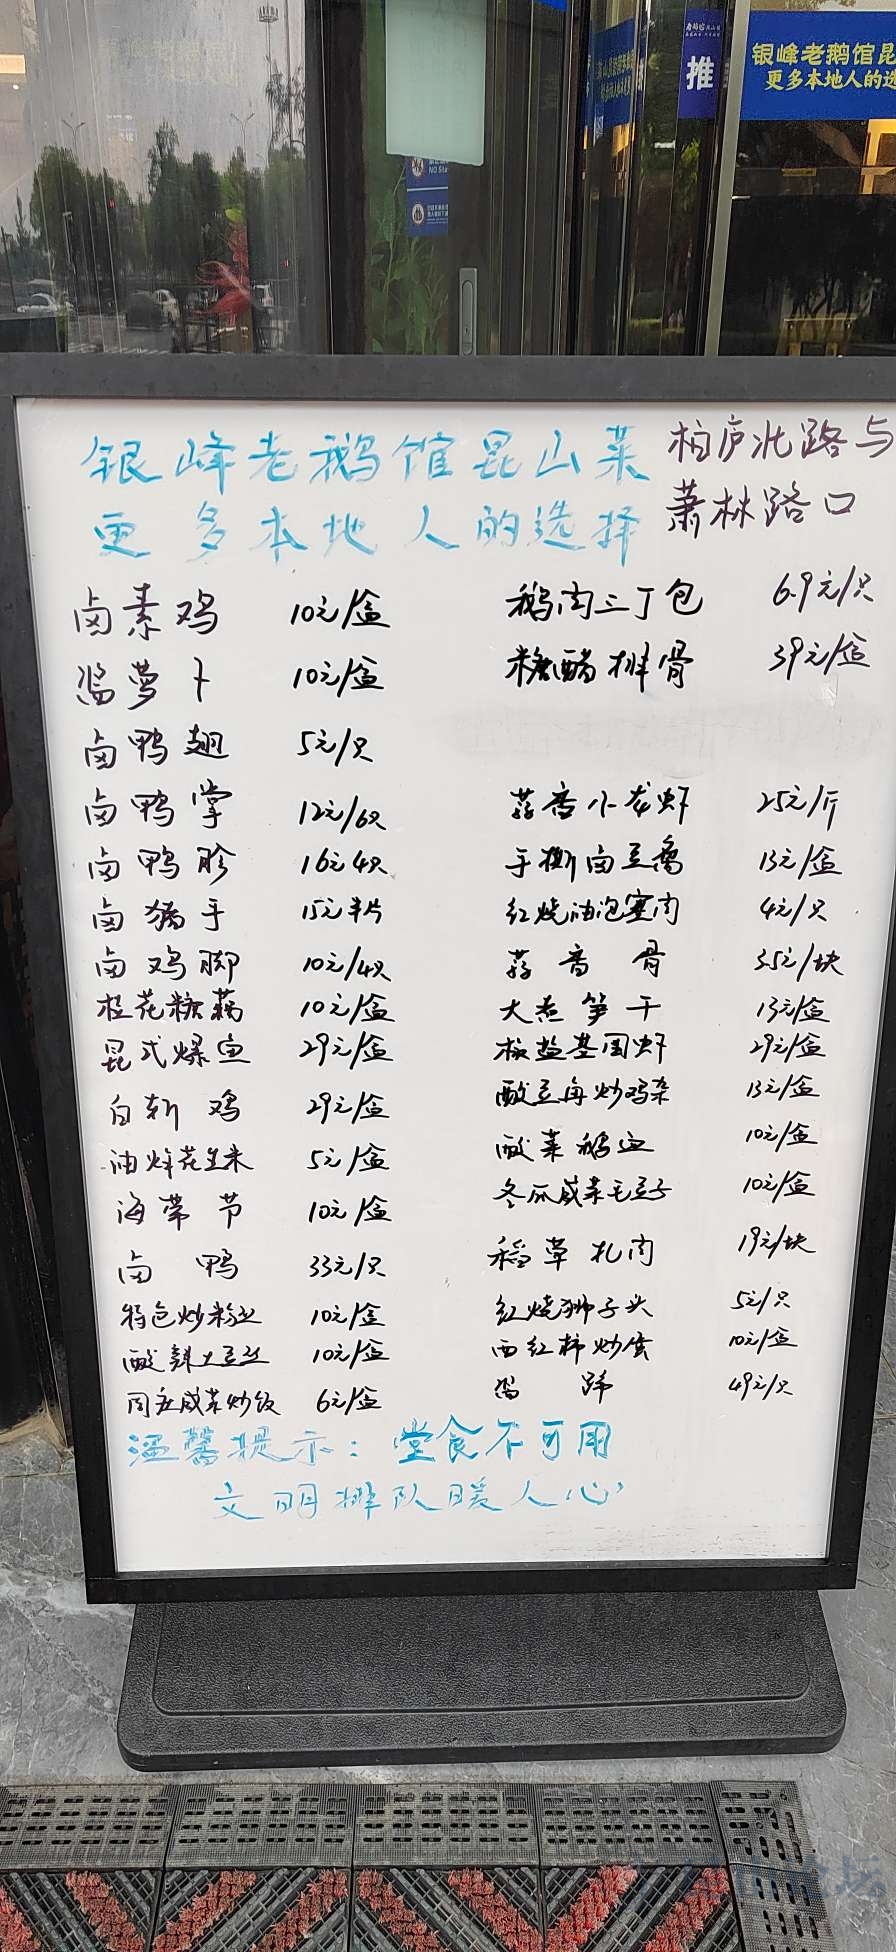 推
银峰老鹅馆昆
更多本地人的选
银峰老鹅馆昆山菜
更多本地人的选择
柏庐北路与
萧林路口
卤素鸡 10元/盒
酱萝卜 10元/盒
卤鸭翅 5元/只
卤鸭掌 12元/6只
卤鸭胗 16元4只
卤猪手 15元半片
卤鸡脚 10元/4只
桂花糖藕 10元/盒
昆式爆鱼 29元/盒
白斩鸡 29元/盒
油炸花生米 5元/盒
海带节 10元/盒
卤鸭 33元/只
特色炒粉丝 10元/盒
酸辣土豆丝 10元/盒
周庄咸菜炒饭 6元/盒
鹅肉三丁包 6.9元/只
糖醋排骨 39元/盒
蒜香小龙虾 25元/斤
手撕卤豆腐 13元/盒
红烧油泡塞肉 4元/只
蒜香骨 35元/块
大煮笋干 13元/盒
椒盐基围虾 29元/盒
酸豆角炒鸡杂 13元/盒
酸菜鹅血 10元/盒
冬瓜咸菜毛豆子 10元/盒
稻草扎肉 19元/块
红烧狮子头 5元/只
西红柿炒蛋 10元/盒
酱蹄 49元/只
温馨提示：堂食不可用
文明排队暖人心